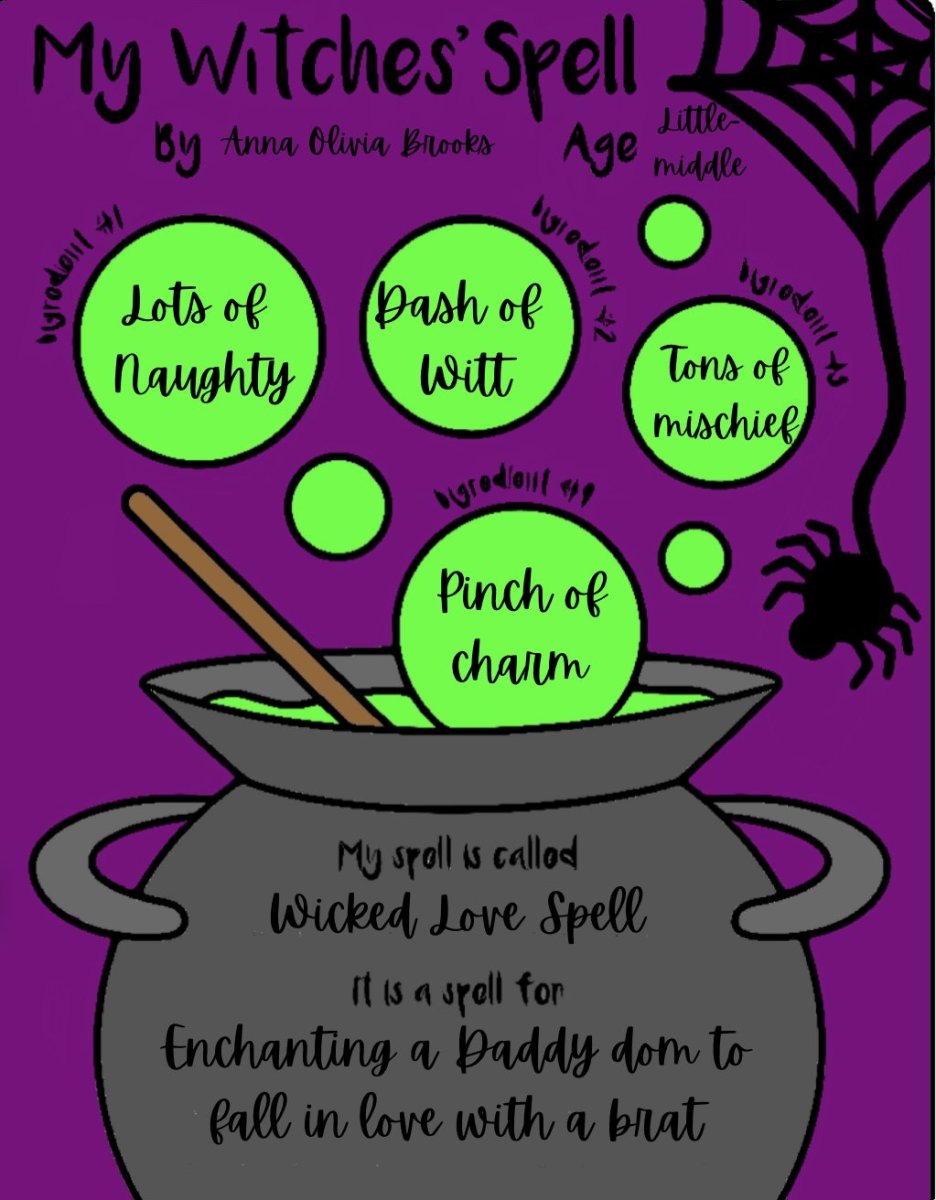 My Witches' Spell
By Anna Olivia Brooks
Age Little-
middle
Ingredient #1
Lots of
Naughty
Ingredient #2
Dash of
Witt
Ingredient #3
Tons of
mischief
Ingredient #4
Pinch of
charm
My spell is called
Wicked Love Spell
It is a spell for
Enchanting a Daddy dom to
fall in love with a brat